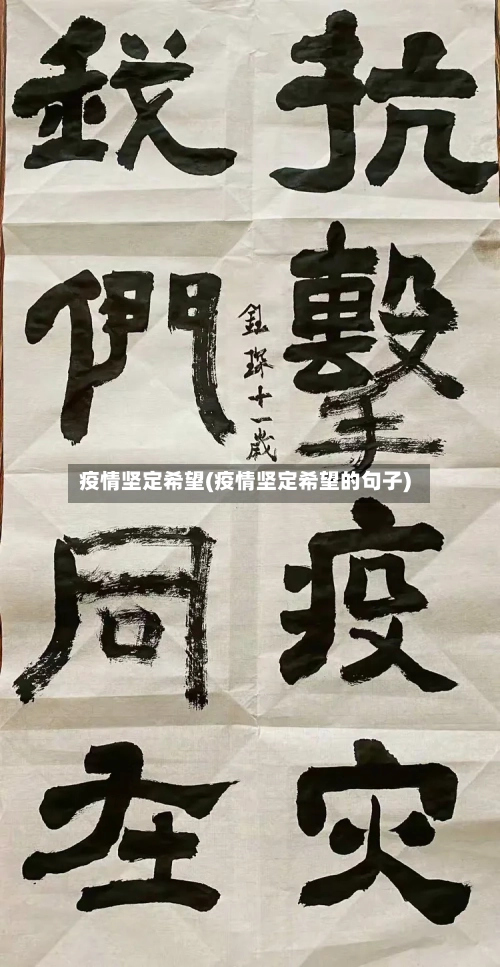 抗擊疫灾
我們同在
鈺琛十一歲
疫情坚定希望(疫情坚定希望的句子)